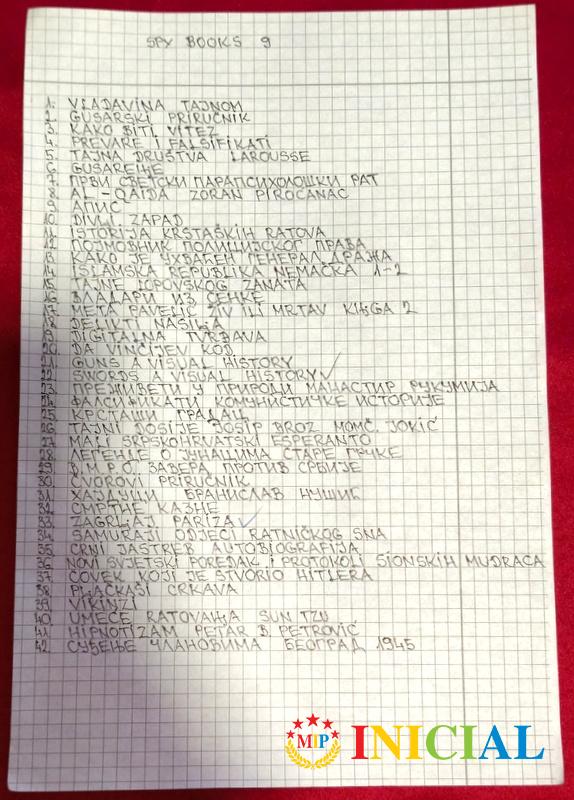 SPY BOOKS 9
1. VLADAVINA TAJNOM
2. GUSARSKI PRIRUČNIK
3. KAKO BITI VITEZ
4. PREVARE I FALSIFIKATI
5. TAJNA DRUŠTVA LAROUSSE
6. GUSARENJE
7. ПРВИ СВЕТСКИ ПАРАПСИХОЛОШКИ РАТ
8. AL-QAIDA ZORAN PIROĆANAC
9. АПИС
10. DIVLI ZAPAD
11. ISTORIJA KRSTAŠKIH RATOVA
12. ПОЈМОВНИК ПОЛИЦИЈСКОГ ПРАВА
13. КАКО ЈЕ УХВАЋЕН ГЕНЕРАЛ ДРАЖА
14. ISLAMSKA REPUBLIKA NEMAČKA 1-2
15. TAJNE LOPOVSKOG ZANATA
16. ВЛАДАРИ ИЗ СЕНКЕ
17. META PAVELIĆ ŽIV ILI MRTAV KNJGA 2
18. DELIKTI NASILJA
19. DIGITALNA TVRĐAVA
20. DA VINČIJEV KOD
21. GUNS A VISUAL HISTORY
22. SWORDS A VISUAL HISTORY
23. ПРЕЖИВЕТИ У ПРИРОДИ МАНАСТИР РУКУМИЈА
24. ФАЛСИФИКАТИ КОМУНИСТИЧКЕ ИСТОРИЈЕ
25. КРСТАШИ ГРАДАЦ
26. TAJNI DOSIJE JOSIP BROZ MOMČ. JOKIĆ
27. MALI SRPSKOHRVATSKI ESPERANTO
28. ЛЕГЕНДЕ О ЈУНАЦИМА СТАРЕ ГРЧКЕ
29. В.М.Р.О. ЗАВЕРА ПРОТИВ СРБИЈЕ
30. ČVOROVI PRIRUČNIK
31. ХАЈДУЦИ БРАНИСЛАВ НУШИЋ
32. СМРТНЕ КАЗНЕ
33. ZAGRLJAJ PARIZA
34. SAMURAJI ODJECI RATNIČKOG SNA
35. CRNI JASTREB AUTOBIOGRAFIJA
36. NOVI SVJETSKI POREDAK I PROTOKOLI SIONSKIH MUDRACA
37. ČOVEK KOJI JE STVORIO HITLERA
38. PLAČKAŠI CRKAVA
39. VIKINZI
40. UMEĆE RATOVANJA SUN TZU
41. HIPNOTIZAM PETAR B PETROVIĆ
42. СУЂЕЊЕ ЧЛАНОВИМА БЕОГРАД 1945
MIP INICIAL